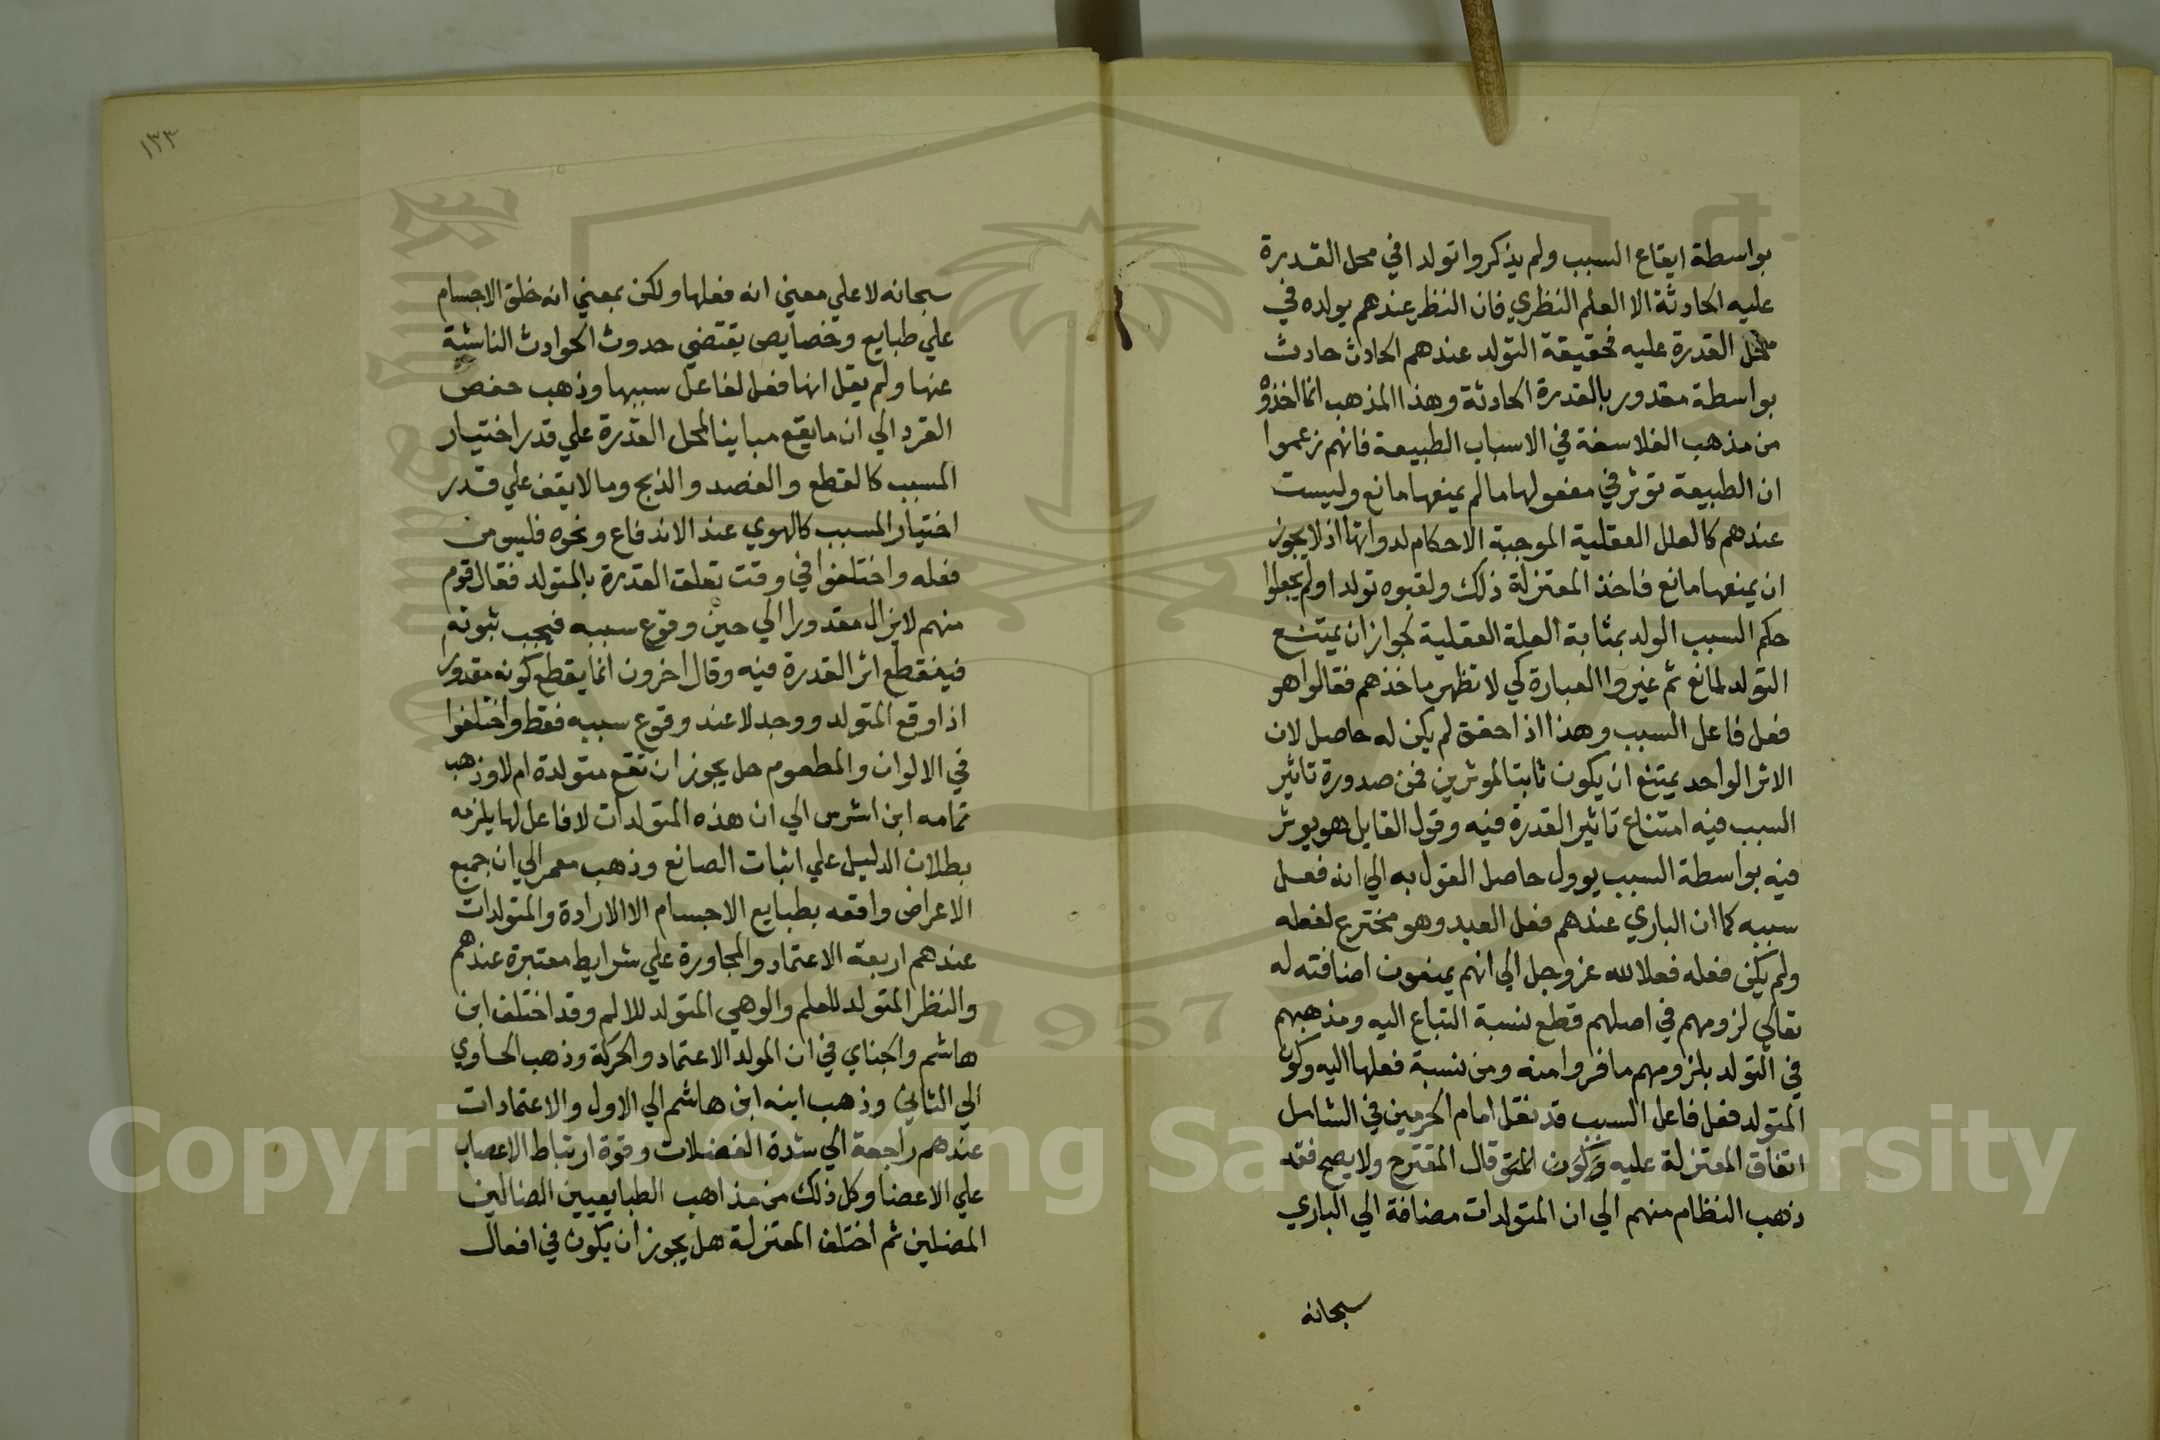 بواسطة ايقاع السبب ولم يذكروا تولدا في محل القدرة
عليه الحادثة الا العلم النظري فان النظر عندهم يولده في
محل القدرة عليه فحقيقة التولد عندهم الحادث حادث
بواسطة مقدور بالقدرة الحادثة وهذا المذهب انما اخذوه
من مذهب الفلاسفة في الاسباب الطبيعة فانهم زعموا
ان الطبيعة توثر في مفعولها ما لم يمنعها مانع وليست
عندهم كالعلل العقلية الموجبة الاحكام لدواتها اذ لا يجوز
ان يمنعها مانع فاخذ المعتزلة ذلك ولقبوه تولدا ولم يجعلوا
حكم السبب الولد بمثابة العلة العقلية لجواز ان يمتنع
التولد لمانع ثم غيروا العبارة كي لا تظهر ماخذهم فقالوا هو
فعل فاعل السبب وهذا اذا حقق لم يكن له حاصل لان
الاثر الواحد يمتنع ان يكون ثابتا لموثرين فمن صدورة تاثير
السبب فيه امتناع تاثير القدرة فيه وقول القايل هو يوثر
فيه بواسطة السبب يوول حاصل القول به الي انه فعل
سببه كما ان الباري عندهم فعل العبد وهو مخترع لفعله
ولم يكن فعله فعلا لله عز وجل الي انهم يمنعون اضافته له
تعالي لزومهم في اصلهم قطع نسبة التباع اليه ومذهبهم
في التولد يلزومهم ما فروا منه ومن نسبة فعلها اليه وكون
المتولد فعل فاعل السبب قد نقل امام الحرمين في الشامل
اتفاق المعتزلة عليه وكون المتو قال المقترح ولا يصح فقد
ذهب النظام منهم الي ان المتولدات مضافة الي الباري
سبحانه
١٣٣
سبحانه لا علي معني انه فعلها ولكن بمعني انه خلق الاجسام
علي طبايع وخصايص يقتضي حدوث الحوادث الناشية
عنها ولم يقل انها فعل لفاعل سببها وذهب حفص
الفرد الي ان ما يقع مباينا لمحل القدرة علي قدر اختيار
المسبب كالقطع والفصد والذبح وما لا يقف علي قدر
اختيار المسبب كالهوي عند الاندفاع ونحوه فليس من
فعله واختلفوا في وقت تعلق القدرة بالمتولد فقال قوم
منهم لا يزال مقدورا الي حين وقوع سببه فيجب ثبوته
فينقطع اثر القدرة فيه وقال اخرون انما يقطع كونه مقدور
اذا وقع المتولد ووجد لا عند وقوع سببه فقط واختلفوا
في الالوان والمطعوم هل يجوز ان تقع متولدة ام لا وذهب
تمامه ابن اشرس الي ان هذه المتولدات لا فاعل لها يلزمه
بطلان الدليل علي اثبات الصانع وذهب معمر الي ان جميع
الاعراض واقعه بطبايع الاجسام الا الارادة والمتولدات
عندهم اربعة الاعتماد والمجاورة علي شرايط معتبرة عندهم
والنظر المتولد للعلم والوهي المتولد للالم وقد اختلف ابن
هاشم واجناي في ان المولد الاعتماد والحركة وذهب الحاوي
الي الثاني وذهب ابنه ابن هاشم الي الاول والاعتمادات
عندهم راجعة الي شدة الفضلات وقوة ارتباط الاعصاب
علي الاعضا وكل ذلك من مذاهب الطبايعيين الضالين
المضلين ثم اختلف المعتزلة هل يجوز ان يكون في افعال
1957
Copyright © King Saud University